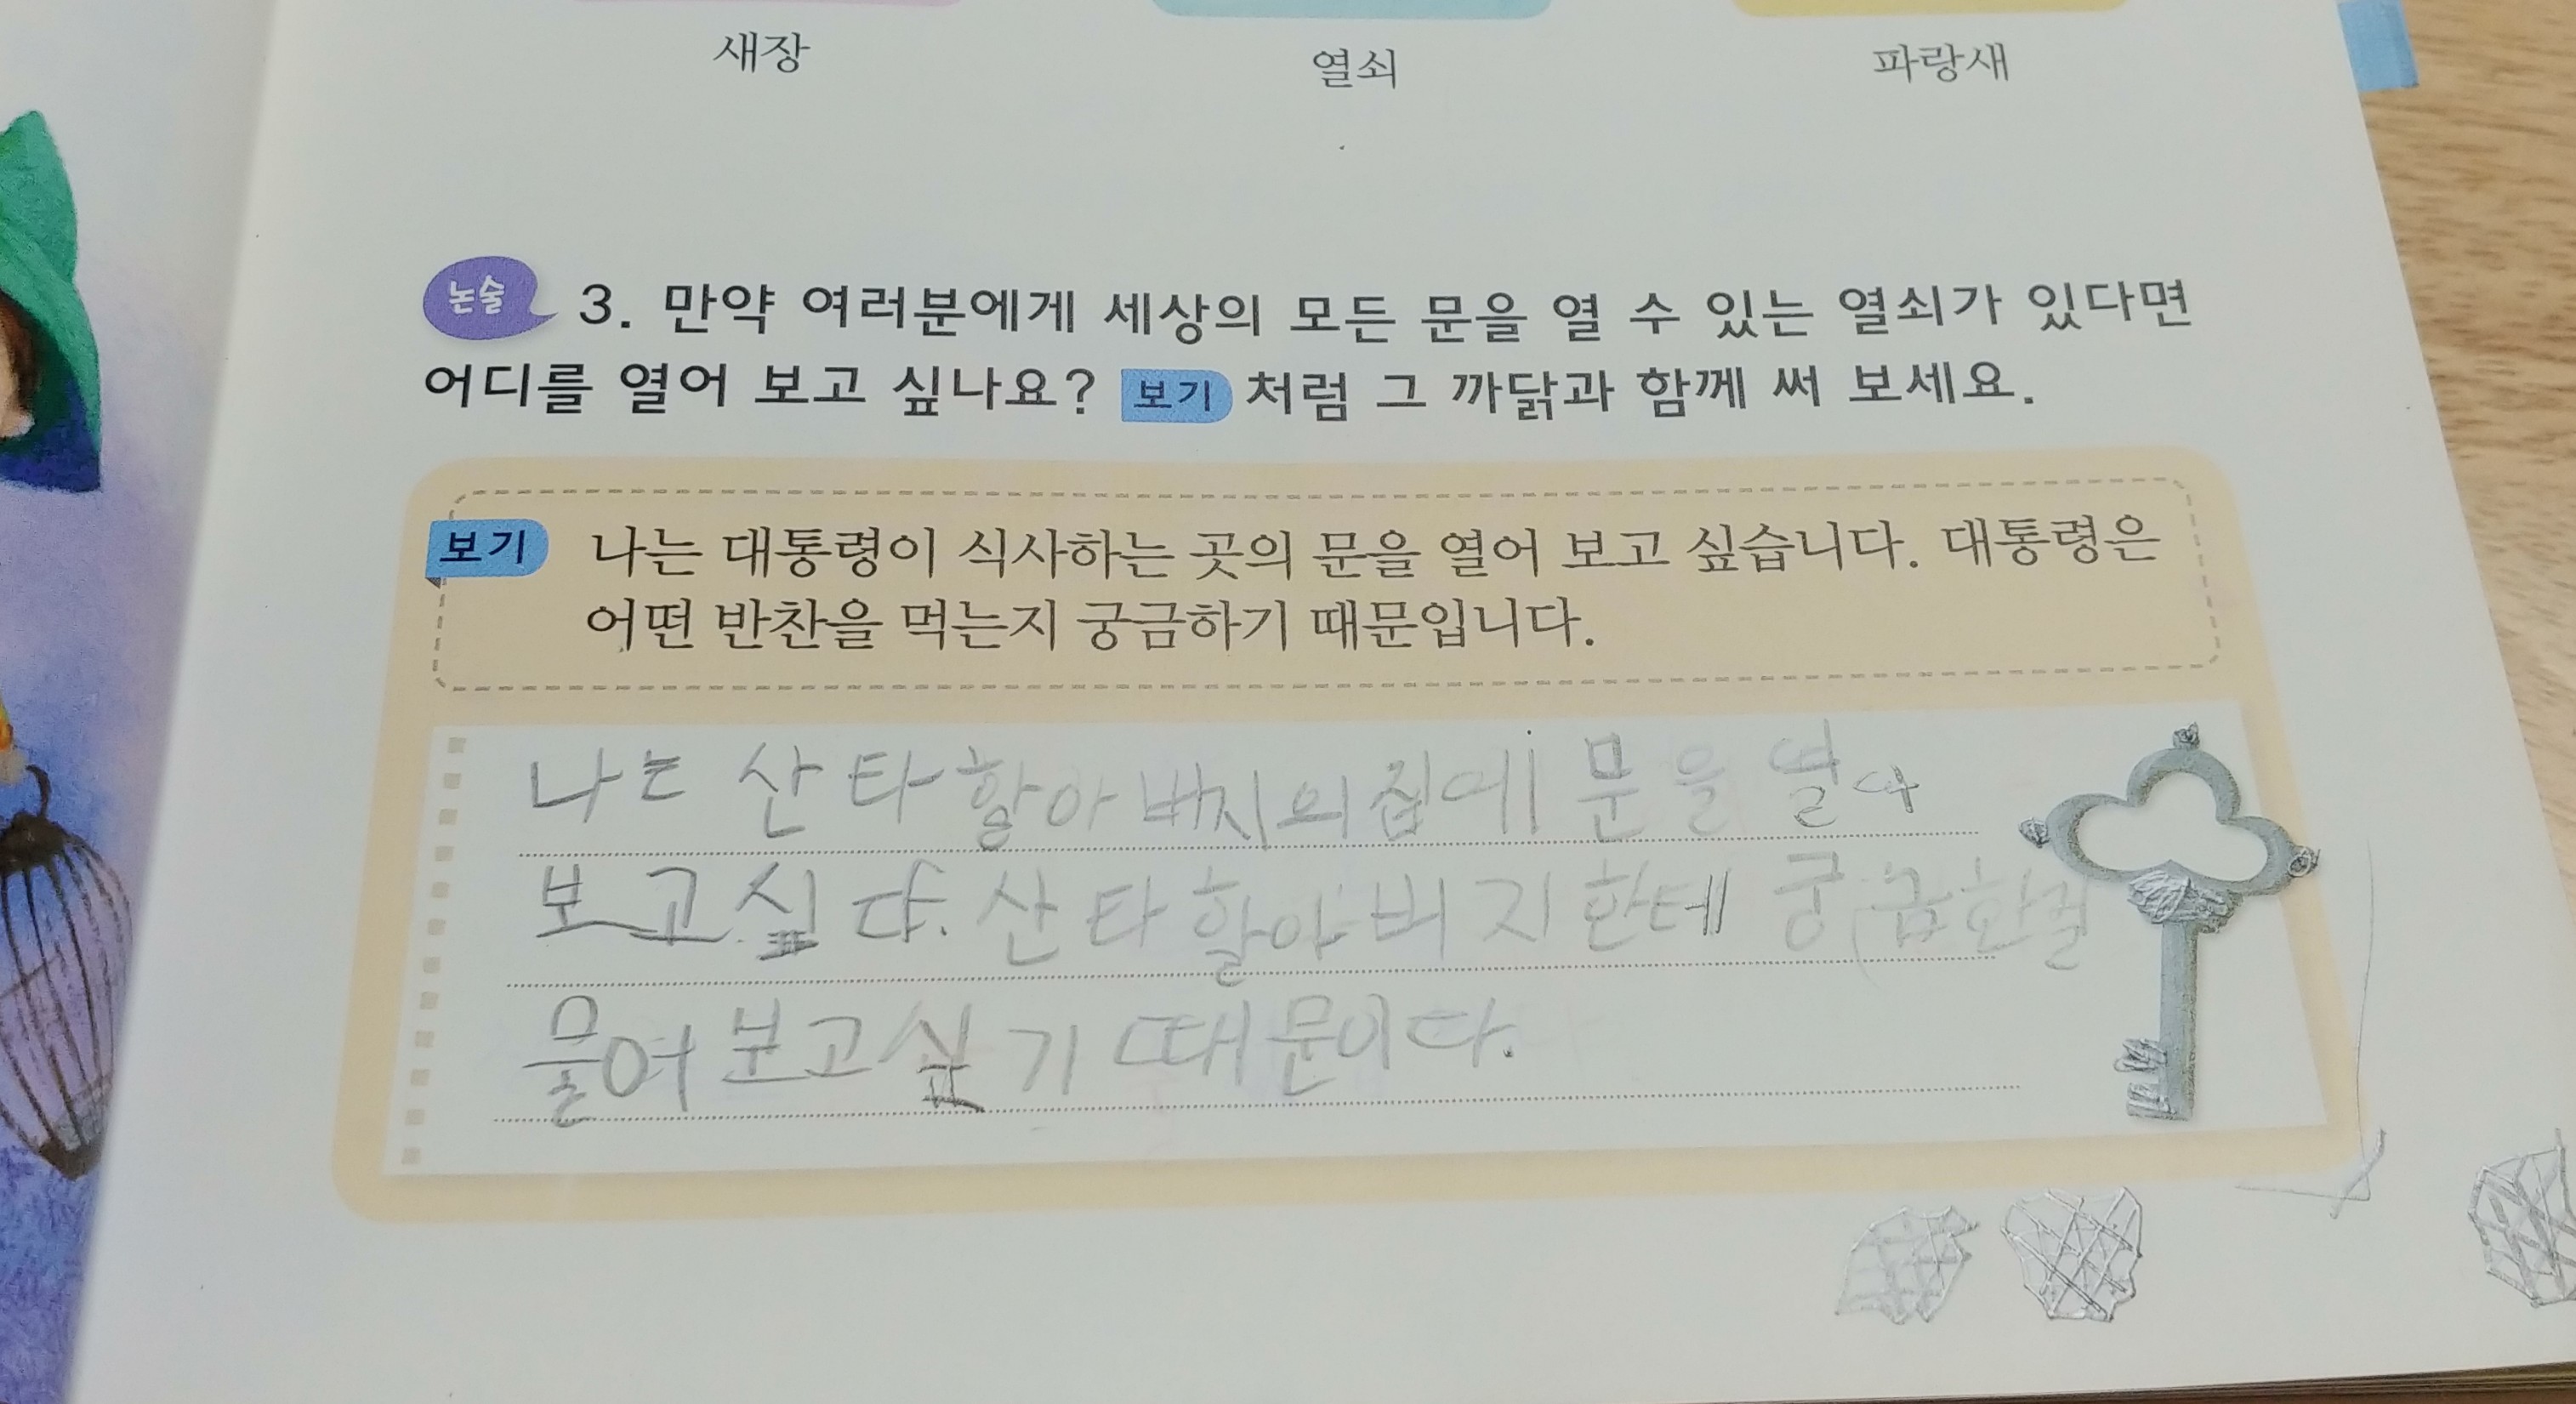 새장 열쇠 파랑새
논술 3. 만약 여러분에게 세상의 모든 문을 열 수 있는 열쇠가 있다면
어디를 열어 보고 싶나요? 보기 처럼 그 까닭과 함께 써 보세요.
보기 나는 대통령이 식사하는 곳의 문을 열어 보고 싶습니다. 대통령은
어떤 반찬을 먹는지 궁금하기 때문입니다.
나는 산타할아버지의집에 문을 열어
보고싶다. 산타할아버지한테 궁금한걸
물어보고싶기 때문이다.